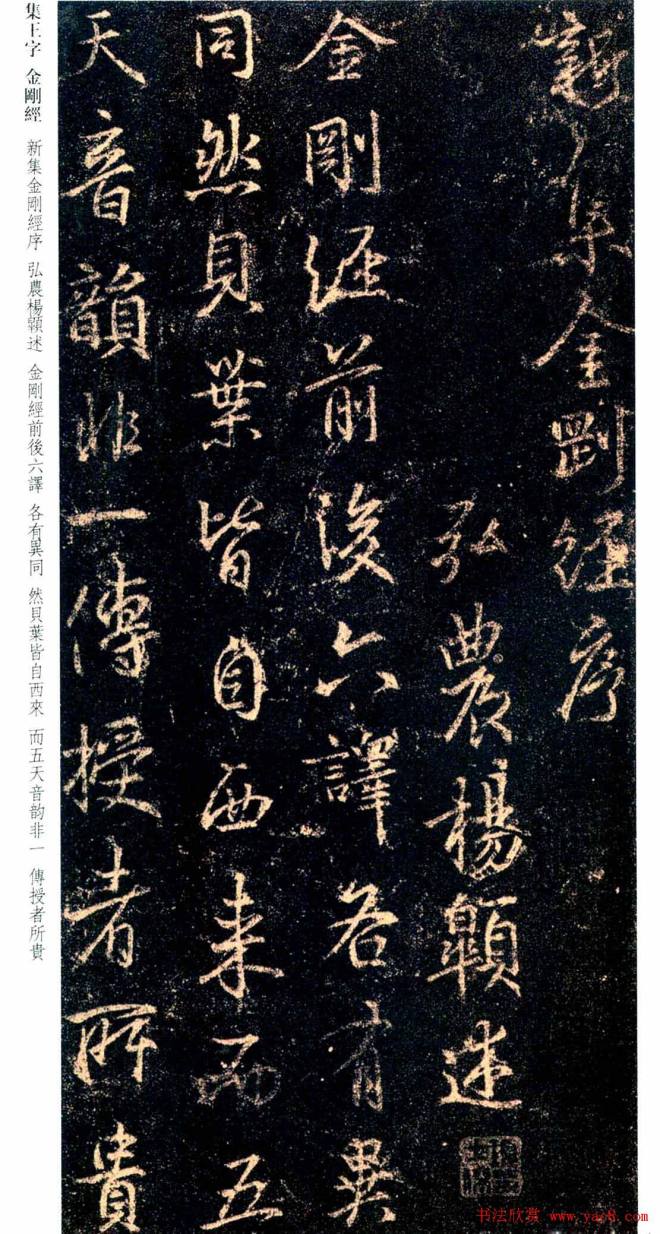 新集金剛經序
弘農楊顗述
金剛經前後六譯各有異
同然貝葉皆自西来而五
天音韻非一傳授者所貴
集王字 金剛經 新集金剛經序 弘農楊顗述 金剛經前後六譯 各有異同 然貝葉皆自西來 而五天音韵非一 傳授者所貴
书法欣赏 www.yac8.com